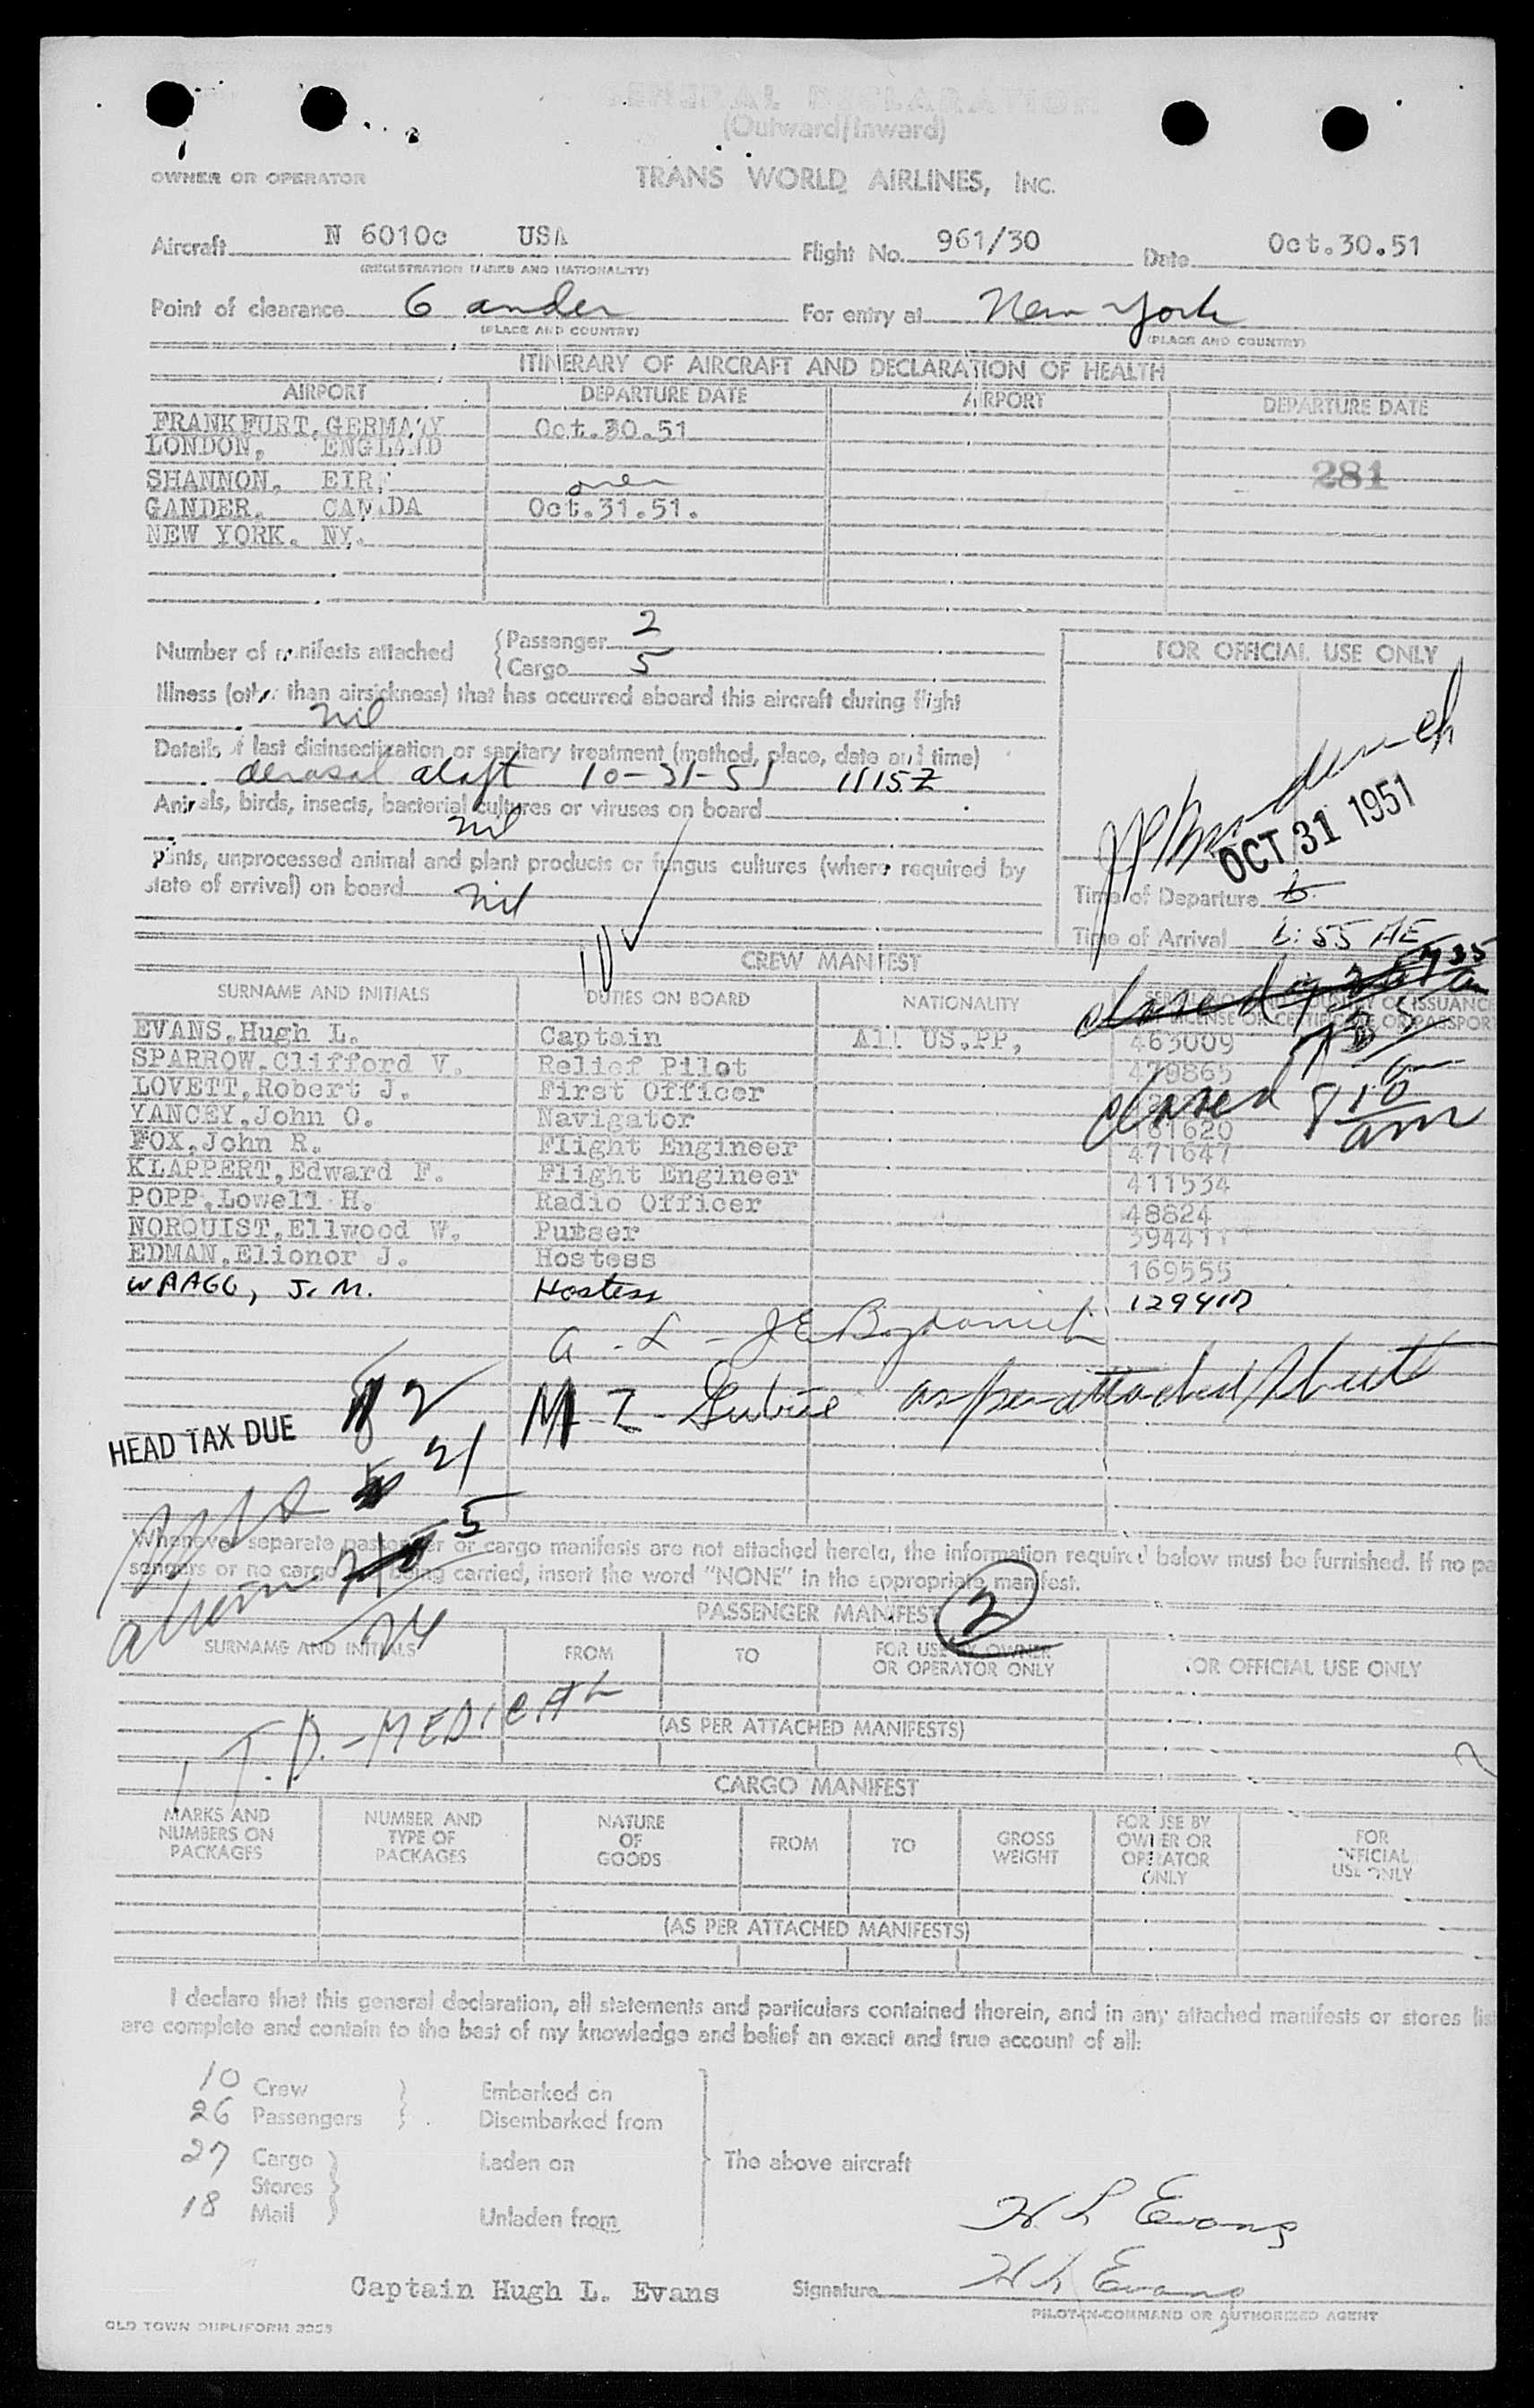 GENERAL DECLARATION
(Outward/Inward)
OWNER OR OPERATOR TRANS WORLD AIRLINES, INC.
Aircraft N 6010c USA Flight No. 961/30 Date Oct.30.51
(REGISTRATION MARKS AND NATIONALITY)
Point of clearance Gander For entry at New York
(PLACE AND COUNTRY) (PLACE AND COUNTRY)
ITINERARY OF AIRCRAFT AND DECLARATION OF HEALTH
AIRPORT DEPARTURE DATE AIRPORT DEPARTURE DATE
FRANKFURT, GERMANY Oct.30.51
LONDON, ENGLAND
281
SHANNON, EIRE over
GANDER, CANADA Oct.31.51.
NEW YORK. NY.
Number of manifests attached {Passenger 2
{Cargo 5
FOR OFFICIAL USE ONLY
Illness (other than airsickness) that has occurred aboard this aircraft during flight
nil
Details of last disinsectization or sanitary treatment (method, place, date and time)
aerosal aloft 10-31-51 1115Z
Animals, birds, insects, bacterial cultures or viruses on board
nil
OCT 31 1951
Plants, unprocessed animal and plant products or fungus cultures (where required by
state of arrival) on board nil
Time of Departure
Time of Arrival 6:55 AE
CREW MANIFEST
SURNAME AND INITIALS DUTIES ON BOARD NATIONALITY
EVANS,Hugh L. Captain All US.PP, 463009
SPARROW,Clifford V. Relief Pilot 479865
LOVETT,Robert J. First Officer
YANCEY,John O. Navigator 161620
FOX,John R. Flight Engineer 471647
KLAPPERT,Edward F. Flight Engineer 411534
POPP,Lowell H. Radio Officer 48824
NORQUIST,Ellwood W. Purser
EDMAN,Elionor J. Hostess 169555
WAAGG, J. M. Hostess
closed 8 10 am
as per attached sheets
HEAD TAX DUE
Whenever separate passenger or cargo manifests are not attached hereto, the information required below must be furnished. If no pa
sengers or no cargo being carried, insert the word "NONE" in the appropriate manifest.
PASSENGER MANIFEST 2
SURNAME AND INITIALS FROM TO FOR USE BY OWNER OR OPERATOR ONLY FOR OFFICIAL USE ONLY
T.D. - MEDICAL
(AS PER ATTACHED MANIFESTS)
CARGO MANIFEST
MARKS AND NUMBERS ON PACKAGES NUMBER AND TYPE OF PACKAGES NATURE OF GOODS FROM TO GROSS WEIGHT FOR USE BY OWNER OR OPERATOR ONLY FOR OFFICIAL USE ONLY
(AS PER ATTACHED MANIFESTS)
I declare that this general declaration, all statements and particulars contained therein, and in any attached manifests or stores lis
are complete and contain to the best of my knowledge and belief an exact and true account of all:
10 Crew Embarked on
26 Passengers Disembarked from
27 Cargo Laden on The above aircraft
Stores
18 Mail Unladen from
H L Evans
Captain Hugh L. Evans Signature H L Evans
PILOT-IN-COMMAND OR AUTHORIZED AGENT
OLD TOWN DUPLIFORM